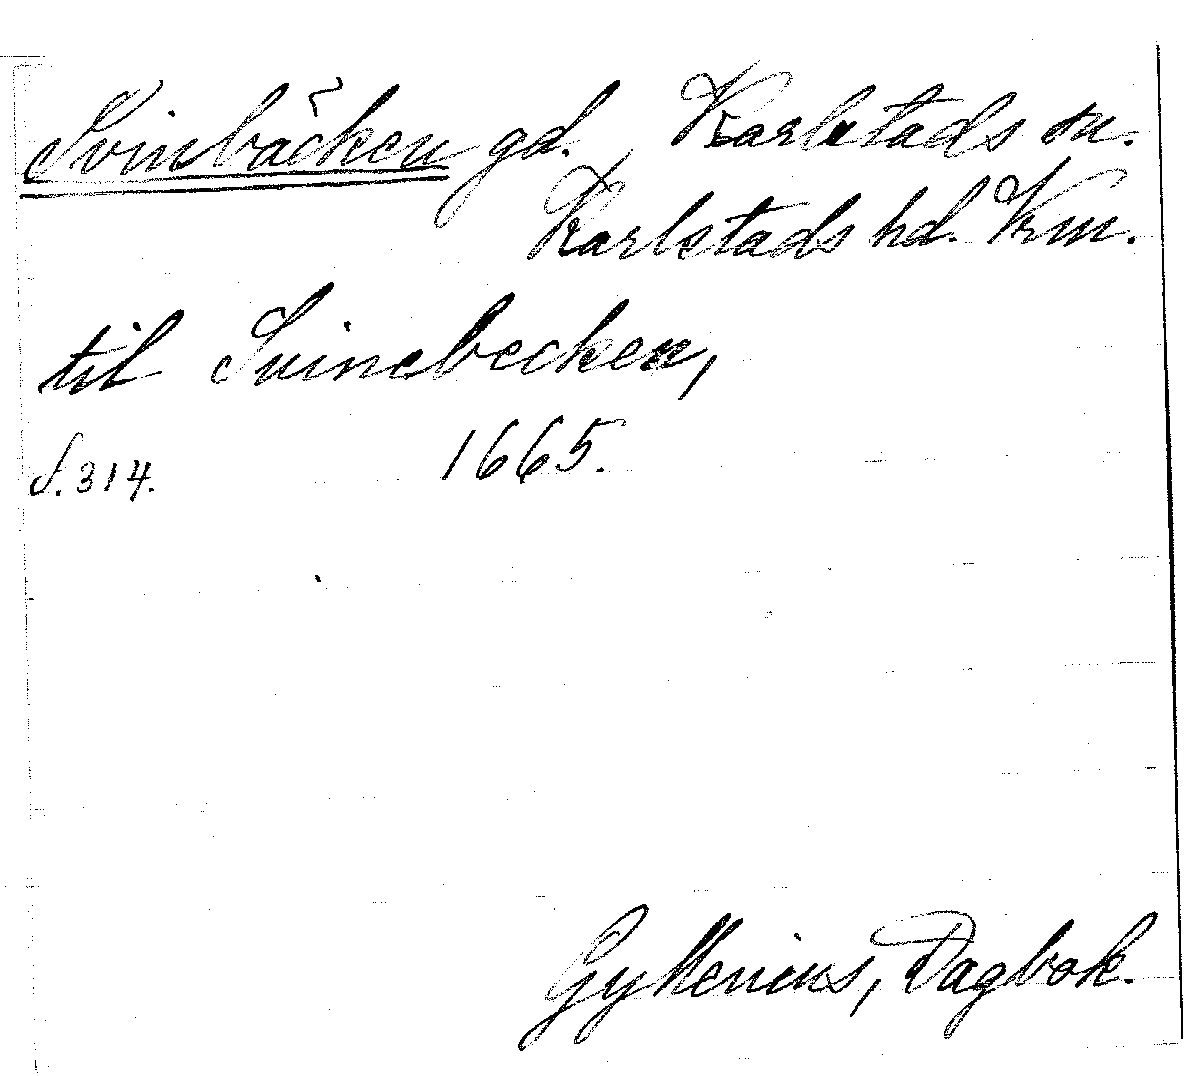 Svinbäcken gd. Karlstads sn.
Karlstads hd. Vrm.
til Svinebecken,
S. 314. 1665.
Gyllenius, Dagbok.